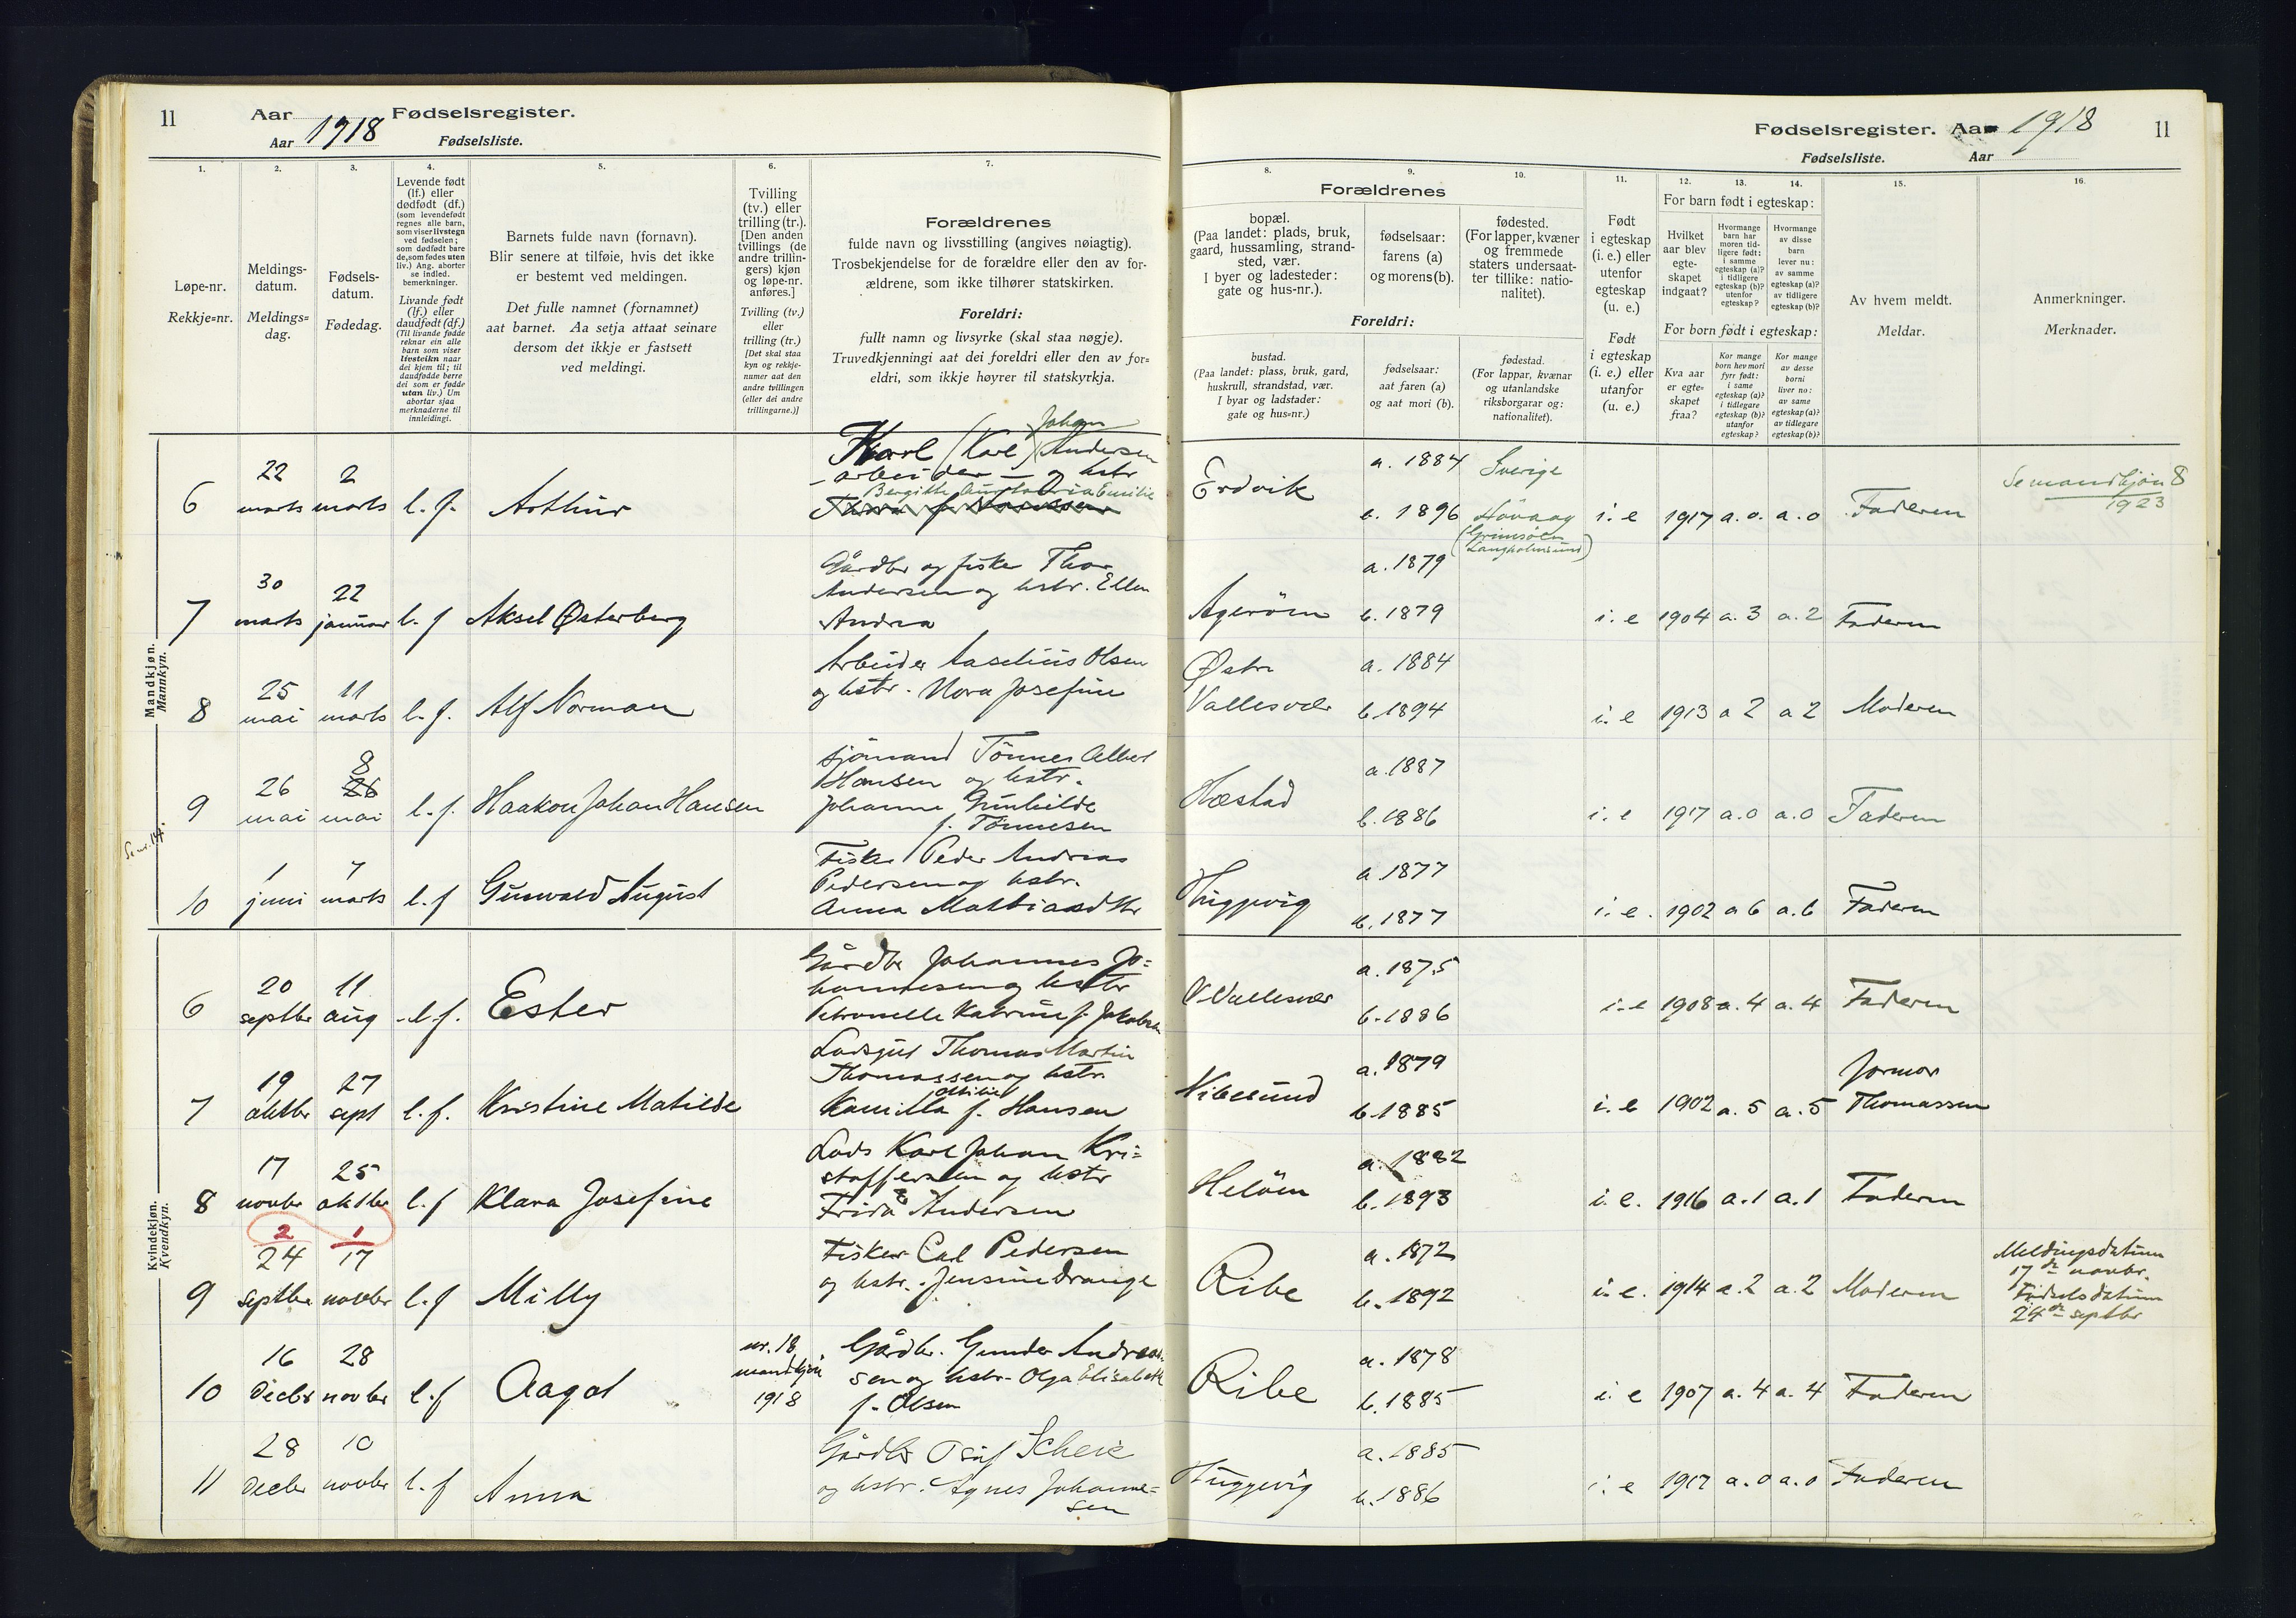 11
Aar Fødselsregister.
Aar 1918 Fødselsliste.
Fødselsregister. Aar 1918
11
Fødselsliste. Aar
1.
Løpe-nr.
Rekkje=nr.
2.
Meldings-
datum.
Meldings=
dag.
3.
Fødsels-
datum.
Fødedag.
4.
Levende født
(lf.) eller
dødfødt (df.)
(som levendefødt
regnes alle barn,
som viser livstegn
ved fødselen;
som dødfødt bare
de, som fødes uten
liv.) Ang. aborter
se indled.
bemerkninger.
Livande født
(lf.) eller
daudfødt (df.)
(Til livande fødde
reknar ein alle
barn som viser
livsteikn naar
dei kjem til; til
daudfødde berre
dei som er fødde
utan liv.) Um
abortar sjaa
merknaderne til
innleidingi.
5.
Barnets fulde navn (fornavn).
Blir senere at tilføie, hvis det ikke
er bestemt ved meldingen.
Det fulle namnet (fornamnet)
aat barnet. Aa setja attaat seinare
dersom det ikkje er fastsett
ved meldingi.
6.
Tvilling
(tv.) eller
trilling (tr.).
[Den anden
tvillings (de
andre trillin-
gers) kjøn
og løpe-nr.
anføres.]
Tvilling (tv.)
eller
trilling (tr.)
[Det skal staa
kyn og rekkje-
numer aat den
andre tvillingen
(eller dei andre
trillingarne.)]
7.
Forældrenes
fulde navn og livsstilling (angives nøiagtig).
Trosbekjendelse for de forældre eller den av for-
ældrene, som ikke tilhører statskirken.
Foreldri:
fullt namn og livsyrke (skal staa nøgje).
Truvedkjenningi aat dei foreldri eller den av for=
eldri, som ikkje høyrer til statskyrkja.
8.
Forældrenes
bopæl.
(Paa landet: plads, bruk,
gaard, hussamling, strand-
sted, vær.
I byer og ladesteder:
gate og hus-nr.).
Foreldri:
bustad.
(Paa landet: plass, bruk, gard,
huskrull, strandstad, vær.
I byar og ladstader:
gate og hus=nr.)
9.
fødselsaar:
farens (a)
og morens (b).
fødselsaar:
aat faren (a)
og aat mori (b).
10.
fødested.
(For lapper, kvæner
og fremmede
staters undersaat-
ter tillike: natio-
nalitet).
fødestad.
(For lappar, kvænar
og utanlandske
riksborgarar og:
nationalitet).
11.
Født
i egteskap
(i. e.) eller
utenfor
egteskap
(u. e.)
Født
i egteskap
(i. e.) eller
utanfor
(u. e.)
12. 13. 14.
For barn født i egteskap:
Hvilket
aar blev
egte-
skapet
indgaat?
Hvormange
barn har
moren tid-
ligere født:
i samme
egteskap (a)?
i tidligere
egteskap (b)?
utenfor
egteskap?
Hvormange
av disse
barn
lever nu:
av samme
egteskap (a)?
av tidligere
egteskap (b)?
For born født i egteskap:
Kva aar
er egte-
skapet
fraa?
Kor mange
born hev mori
fyrr født:
i same
egteskap (a)?
i tidlegare
egteskap (b)?
utanfor
egteskap?
Kor mange
av desse
borni
liver no:
av same
egteskap (a)?
av tidlegare
egteskap (b)?
15.
Av hvem meldt.
Meldar.
16.
Anmerkninger.
Merknader.
Mandkjøn.
Mannkyn.
6 22 marts 2 marts l.f. Arthur
Karl (Karl) Johan Andersen
arbeider og hstr
Bergitte Emilie
Erdvik a. 1884 Sverige
b. 1896 Høvaag
i. e 1917 a. 0. a. 0 Faderen
Se mandkjøn 8
1923
7 30 marts 22 januar l.f Aksel Østerberg
Gårdbr og fisker Thor
Andersen og hstr. Ellen
Andrea
Agerøen a. 1879
b. 1879
i. e 1904 a. 3 a. 2 Faderen
8 25 mai 11 marts l.f. Alf Norman
Arbeider Aaselius Olsen
og hstr. Nora Josefine
Østre
Vallesvær a. 1884
b. 1894
i. e 1913 a 2 a 2 Moderen
9 26 mai 8 26 mai l.f. Haakon Johan Hansen
sjømand Tønnes Albert
Hansen og hstr.
Johanne Gunhilde
f. Tønnesen
Hæstad a. 1887
b. 1886
i. e 1917 a. 0 a. 0 Faderen
Se nr. 14.
10 1 juni 7 marts l.f Gunvald August
Fisker Peder Andreas
Pedersen og hstr.
Anna Mathiasdttr
Huggevig a 1877
b. 1877
i. e. 1902 a 6 a. 6 Faderen
Kvindekjøn.
Kvendkyn.
6 20 septbr 11 aug l.f. Ester
Gårdbr Johannes Jo=
hannesen og hstr
Petronelle Katrine f. Jakobsen
V Vallesvær a. 1875
b. 1886
i. e 1908 a. 4 a. 4 Faderen
7 19 oktbr 27 sept l.f. Kristine Matilde
Lodsgut Thomas Martin
Thomassen og hstr.
Kamilla Otilie f. Hansen
Vibesund a. 1879
b. 1885
i. e 1902 a. 5 a. 5 Formor
Thomassen
8 17 novbr 25 oktbr l.f Klara Josefine
Lods Karl Johan Kri=
stoffersen og hstr
Frida Andersen
Heløen a. 1882
b. 1893
i. e. 1916 a. 1 a. 1 Faderen
2 1
9 24 septbr 17 novbr l.f Milly
Fisker Carl Pedersen
og hstr. Jensine Drange
Ribe a. 1872
b. 1892
i. e. 1914 a. 2 a. 2 Moderen
Meldingsdatum
17de novbr.
Fødselsdatum
24de septbr
10 16 decbr 28 novbr l.f Aagot
nr. 18
mandkjøn
1918
Gårdbr. Gunder Andreas-
sen og hstr. Olga Elisabeth
f. Olsen
Ribe a. 1878
b. 1885
i. e 1907 a. 4 a. 4 Faderen
11 28 decbr 10 novbr l.f Anna
Gårdbr Olaf Scheie
og hstr. Agnes Johanne=
sen
Huggevig a. 1885
b. 1886
i. e 1917 a. 0 a. 0 Faderen